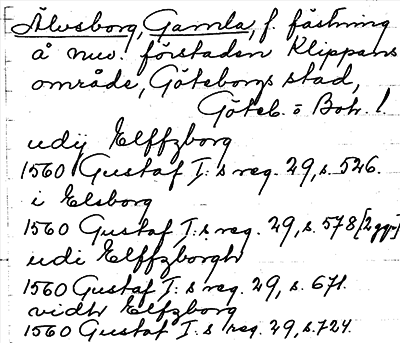 Älvsborg, Gamla, f. fästning
å nuv. förstaden Klippans
område, Göteborgs stad,
Göteb. o Boh. l.
udij Elffzborg
1560 Gustaf I:s reg. 29, s. 526.
i Elsborg
1560 Gustaf I:s reg. 29, s. 578 [2 ggr]
udi Elffzborgh
1560 Gustaf I:s reg. 29, s. 671.
vidtr Elfzborg
1560 Gustaf I:s reg. 29, s. 724.